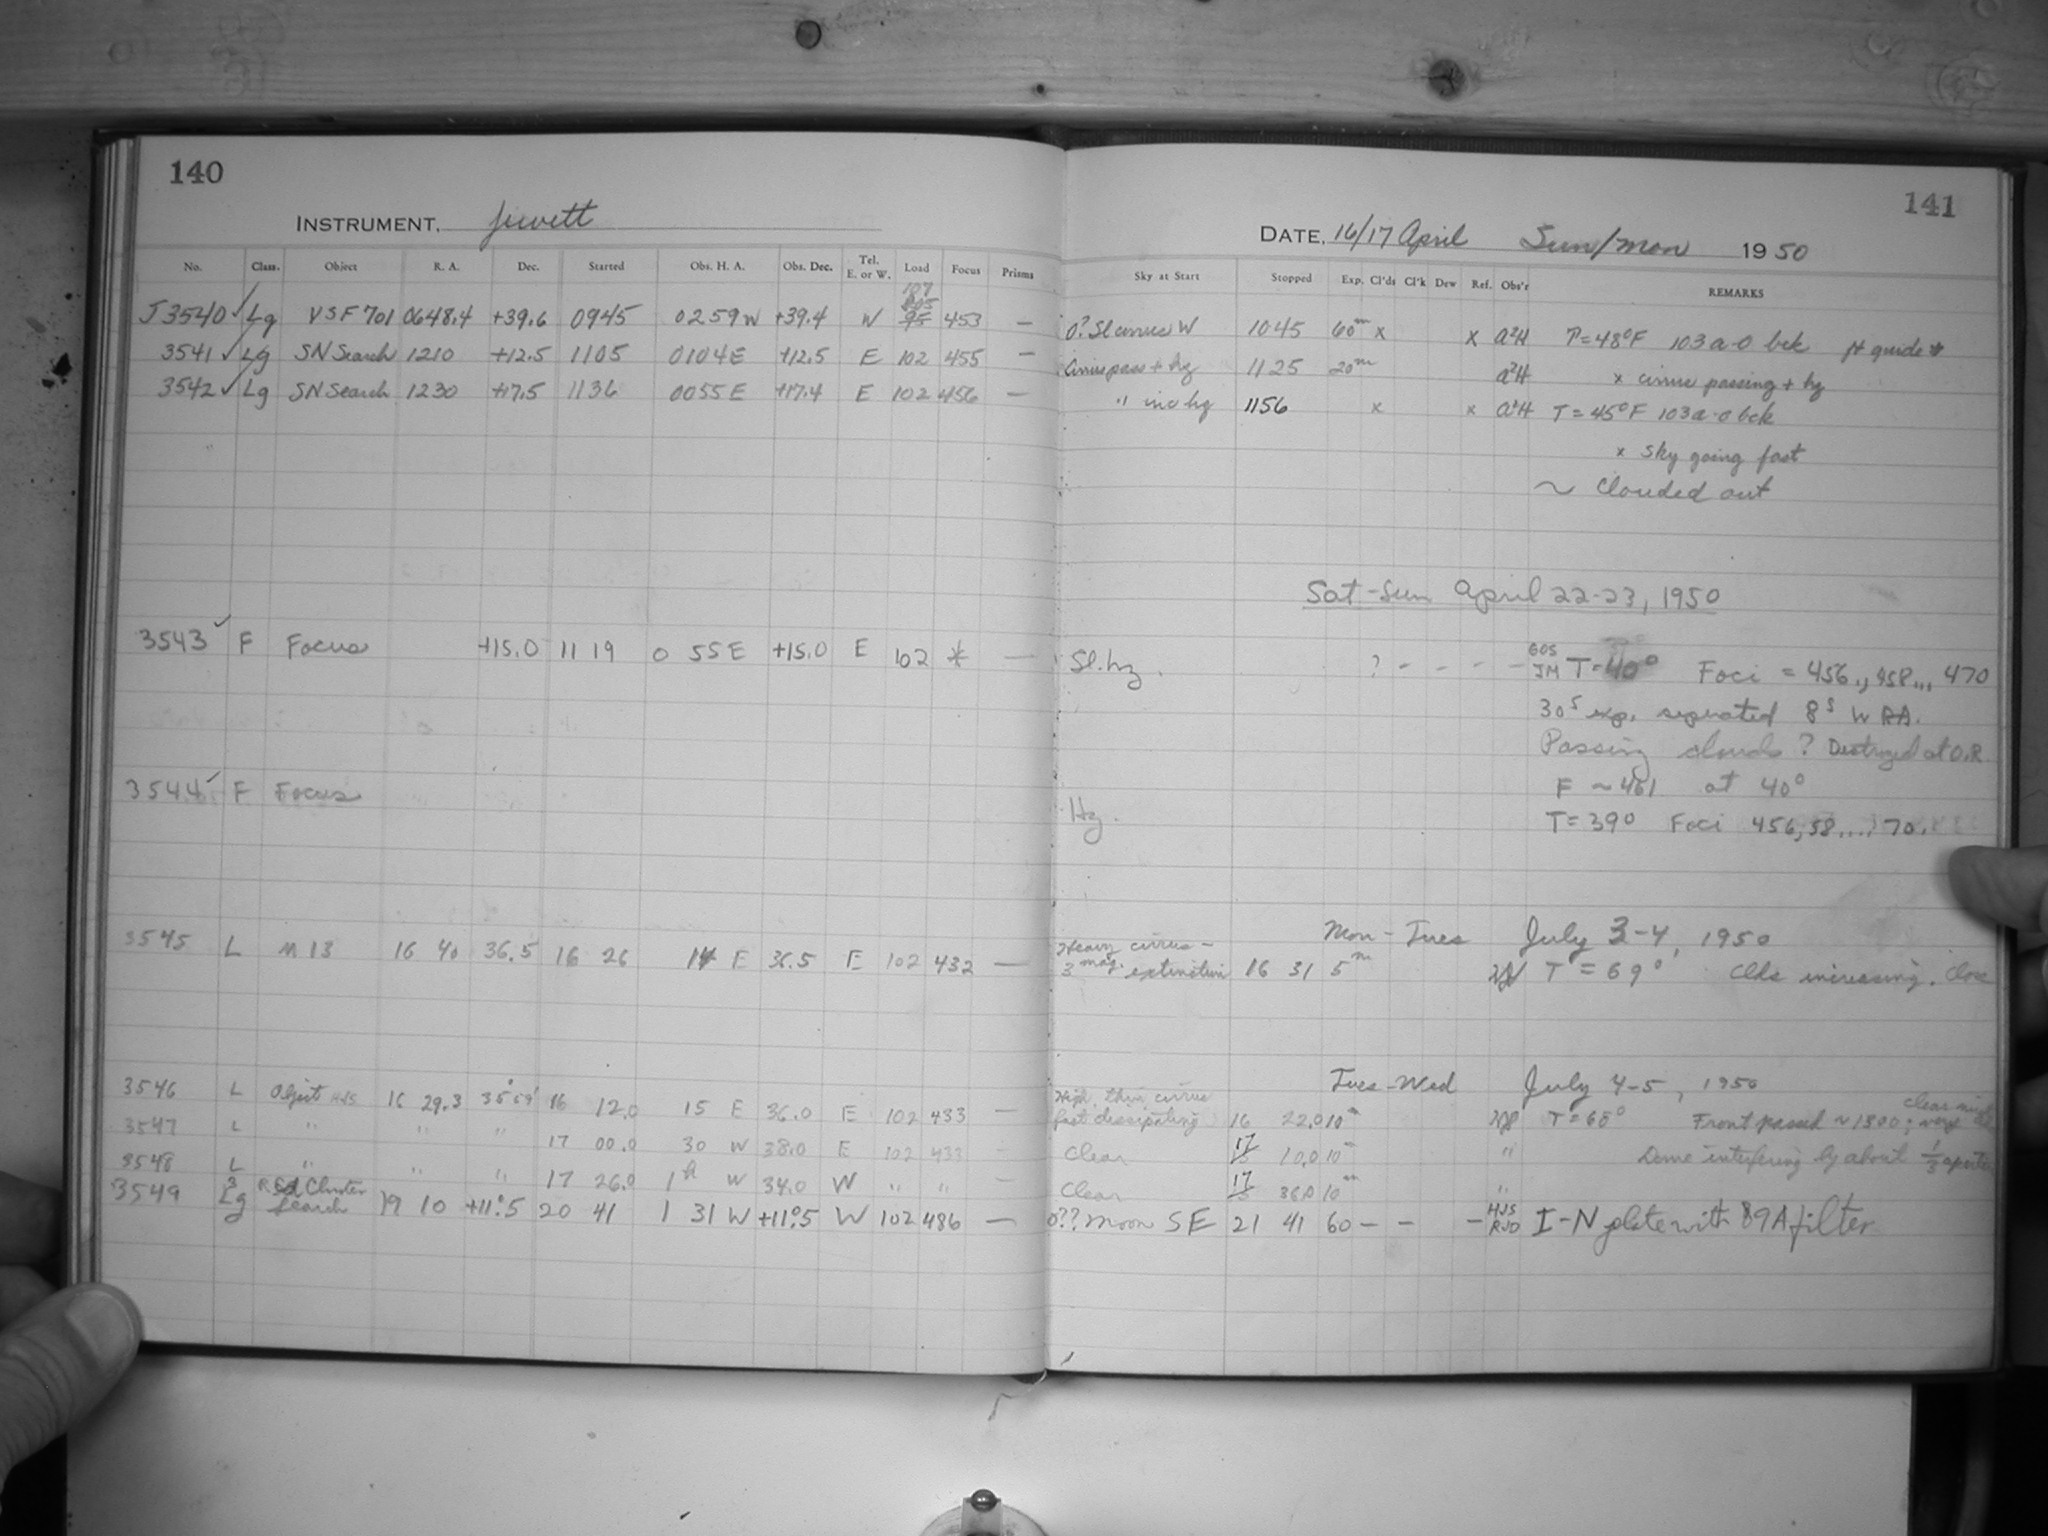 140
INSTRUMENT. Jewett
No. Class. Object R. A. Dec. Started Obs. H. A. Obs. Dec. Tel. E. or W. Load Focus Prisms
107
105
J3540 ✓ Lg VSF 701 0648.4 +39.6 0945 0259W +39.4 W 95 453 —
3541 ✓ Lg SN Search 1210 +12.5 1105 0104E +12.5 E 102 455 —
3542 ✓ Lg SN Search 1230 +17.5 1136 0055E +17.4 E 102 456 —
3543 ✓ F Focus +15.0 11 19 0 55E +15.0 E 102 * —
3544 ✓ F Focus
3545 L M 13 16 40 36.5 16 26 14 E 36.5 E 102 432 —
3546 L Object HJS 16 29.3 35°59' 16 12.0 15 E 36.0 E 102 433 —
3547 L " " " 17 00.0 30 W 38.0 E 102 433 —
3548 L " " " 17 26.0 1h W 34.0 W " " —
3549 Lg Red Cluster Search 19 10 +11°.5 20 41 1 31 W +11°.5 W 102 486 —
141
DATE. 16/17 April Sun/Mon 1950
Sky at Start Stopped Exp. Cl'ds Cl'k Dew Ref. Obs'r REMARKS
0? Sl cirrus W 1045 60m x x a²H T=48°F 103a-O bck ft guide *
Cirrus pass + hz 1125 20m a²H x cirrus passing + hz
" inc hz 1156 x x a²H T=45°F 103a-O bck
x Sky going fast
~ Clouded out
Sat-Sun April 22-23, 1950
Sl. hz. ? - - - - GOS JM T=40° Foci = 456., 458..., 470
30s exp. separated 8s W RA.
Passing clouds? Destroyed at O.R.
F ~ 461 at 40°
Hz. T=39° Foci 456, 58...., 70.
Mon-Tues July 3-4, 1950
Heavy cirrus -
3 mag. extinction 16 31 5m T = 69° Clds increasing. Close
Tues-Wed July 4-5, 1950
High, thin cirrus
fast dissipating 16 22.0 10m T=65° Front passed ~1500; clear
Clear 17 10.0 10m " Dome interfering by about 1/3 aperture
Clear 17 36.0 10m "
0?? Moon SE 21 41 60 — — — HJS RJD I-N plate with 89A filter